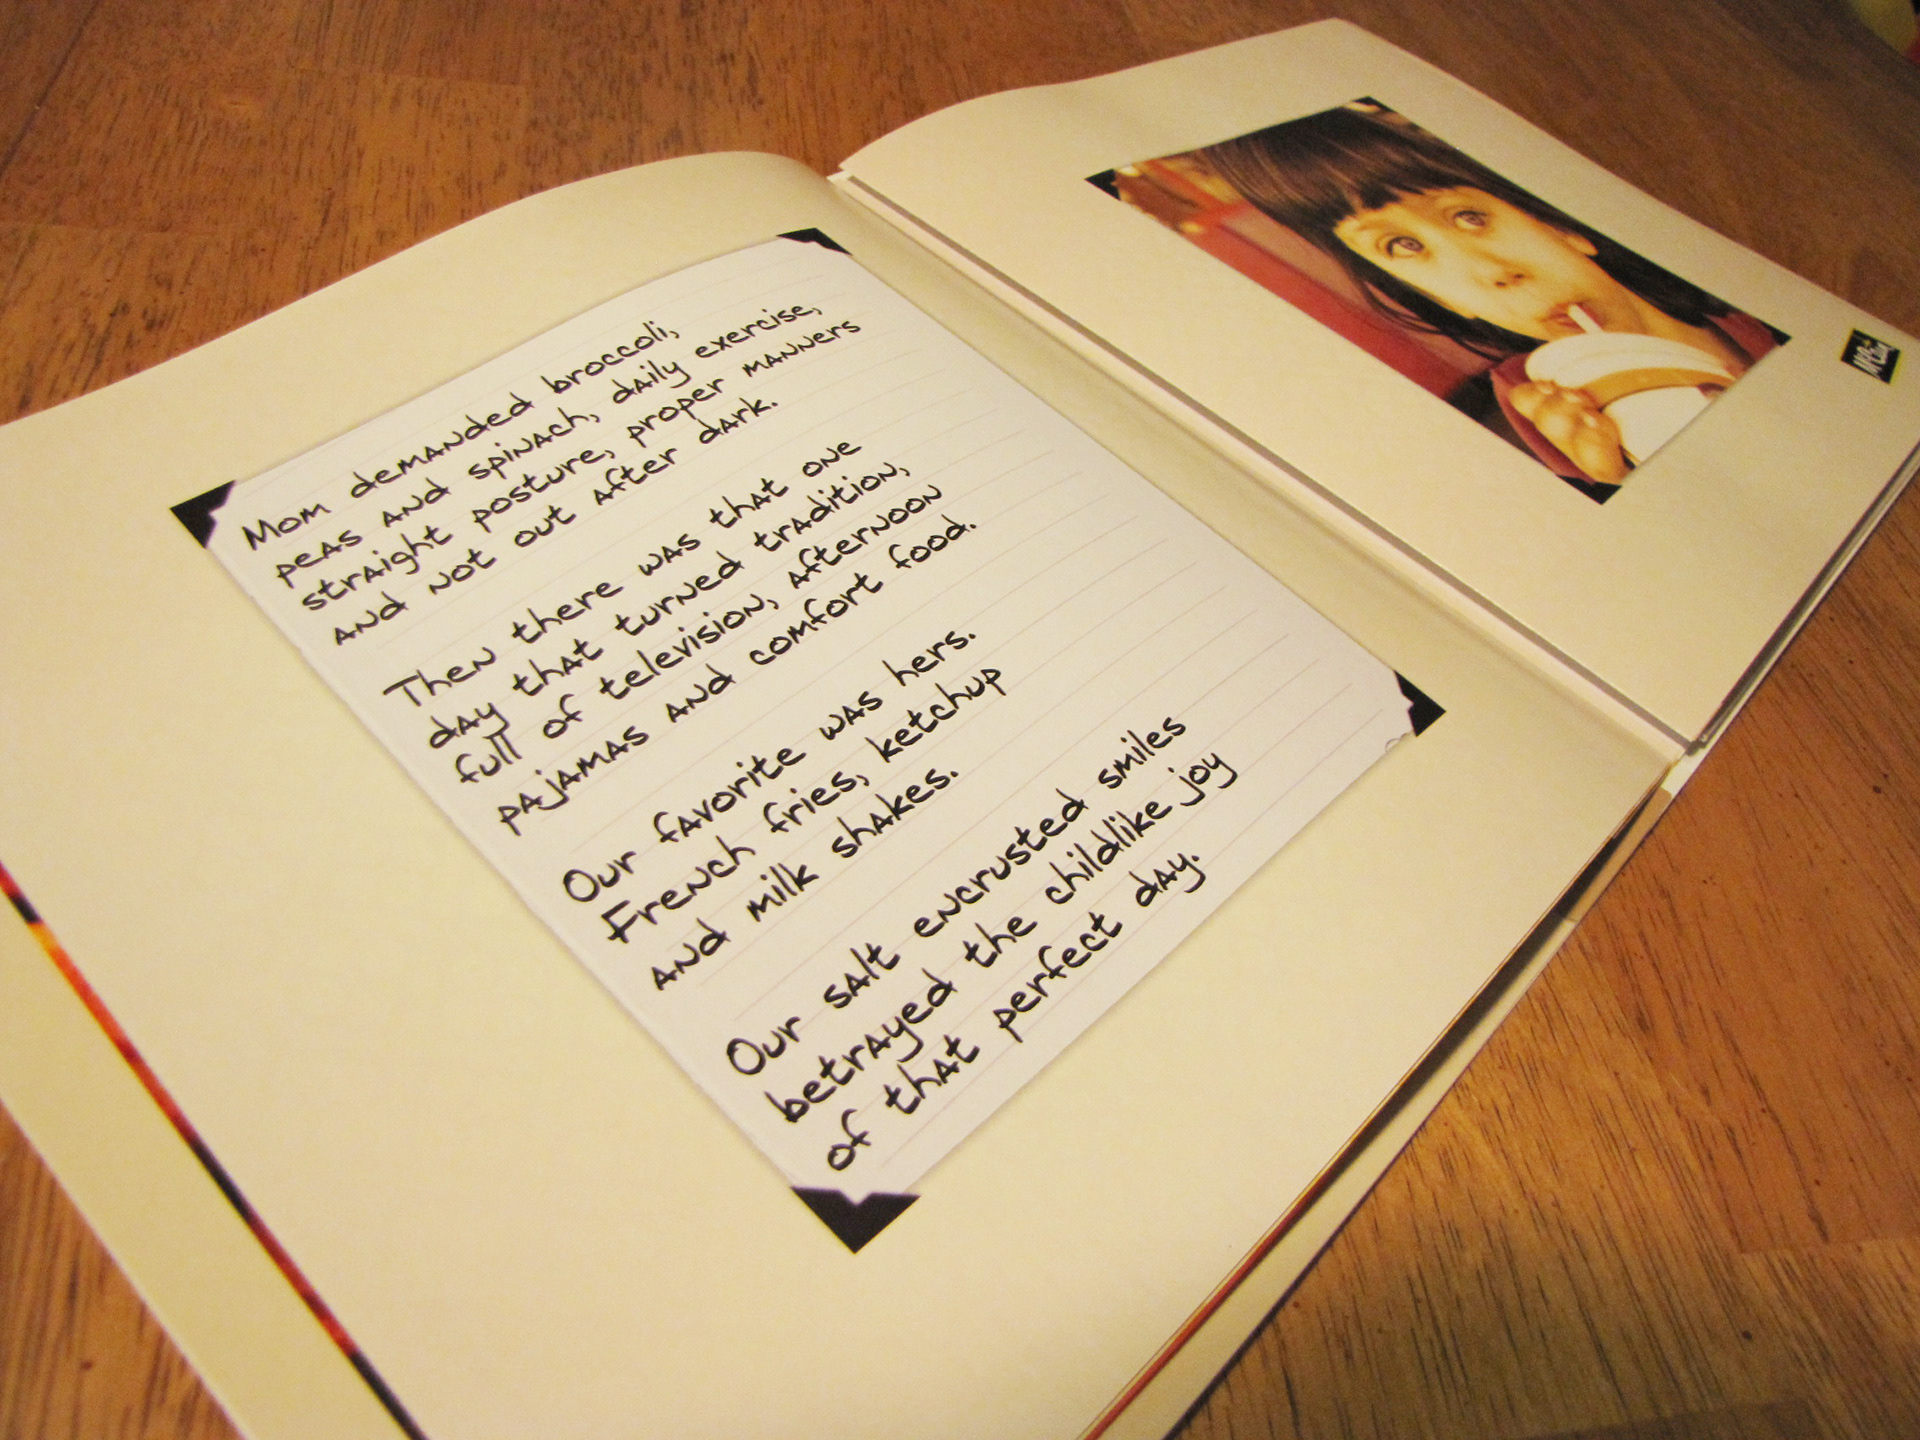 Mom demanded broccoli,
peas and spinach, daily exercise,
straight posture, proper manners
and not out after dark.
Then there was that one
day that turned tradition,
full of television, afternoon
pajamas and comfort food.
Our favorite was hers.
French fries, ketchup
and milk shakes.
Our salt encrusted smiles
betrayed the childlike joy
of that perfect day.